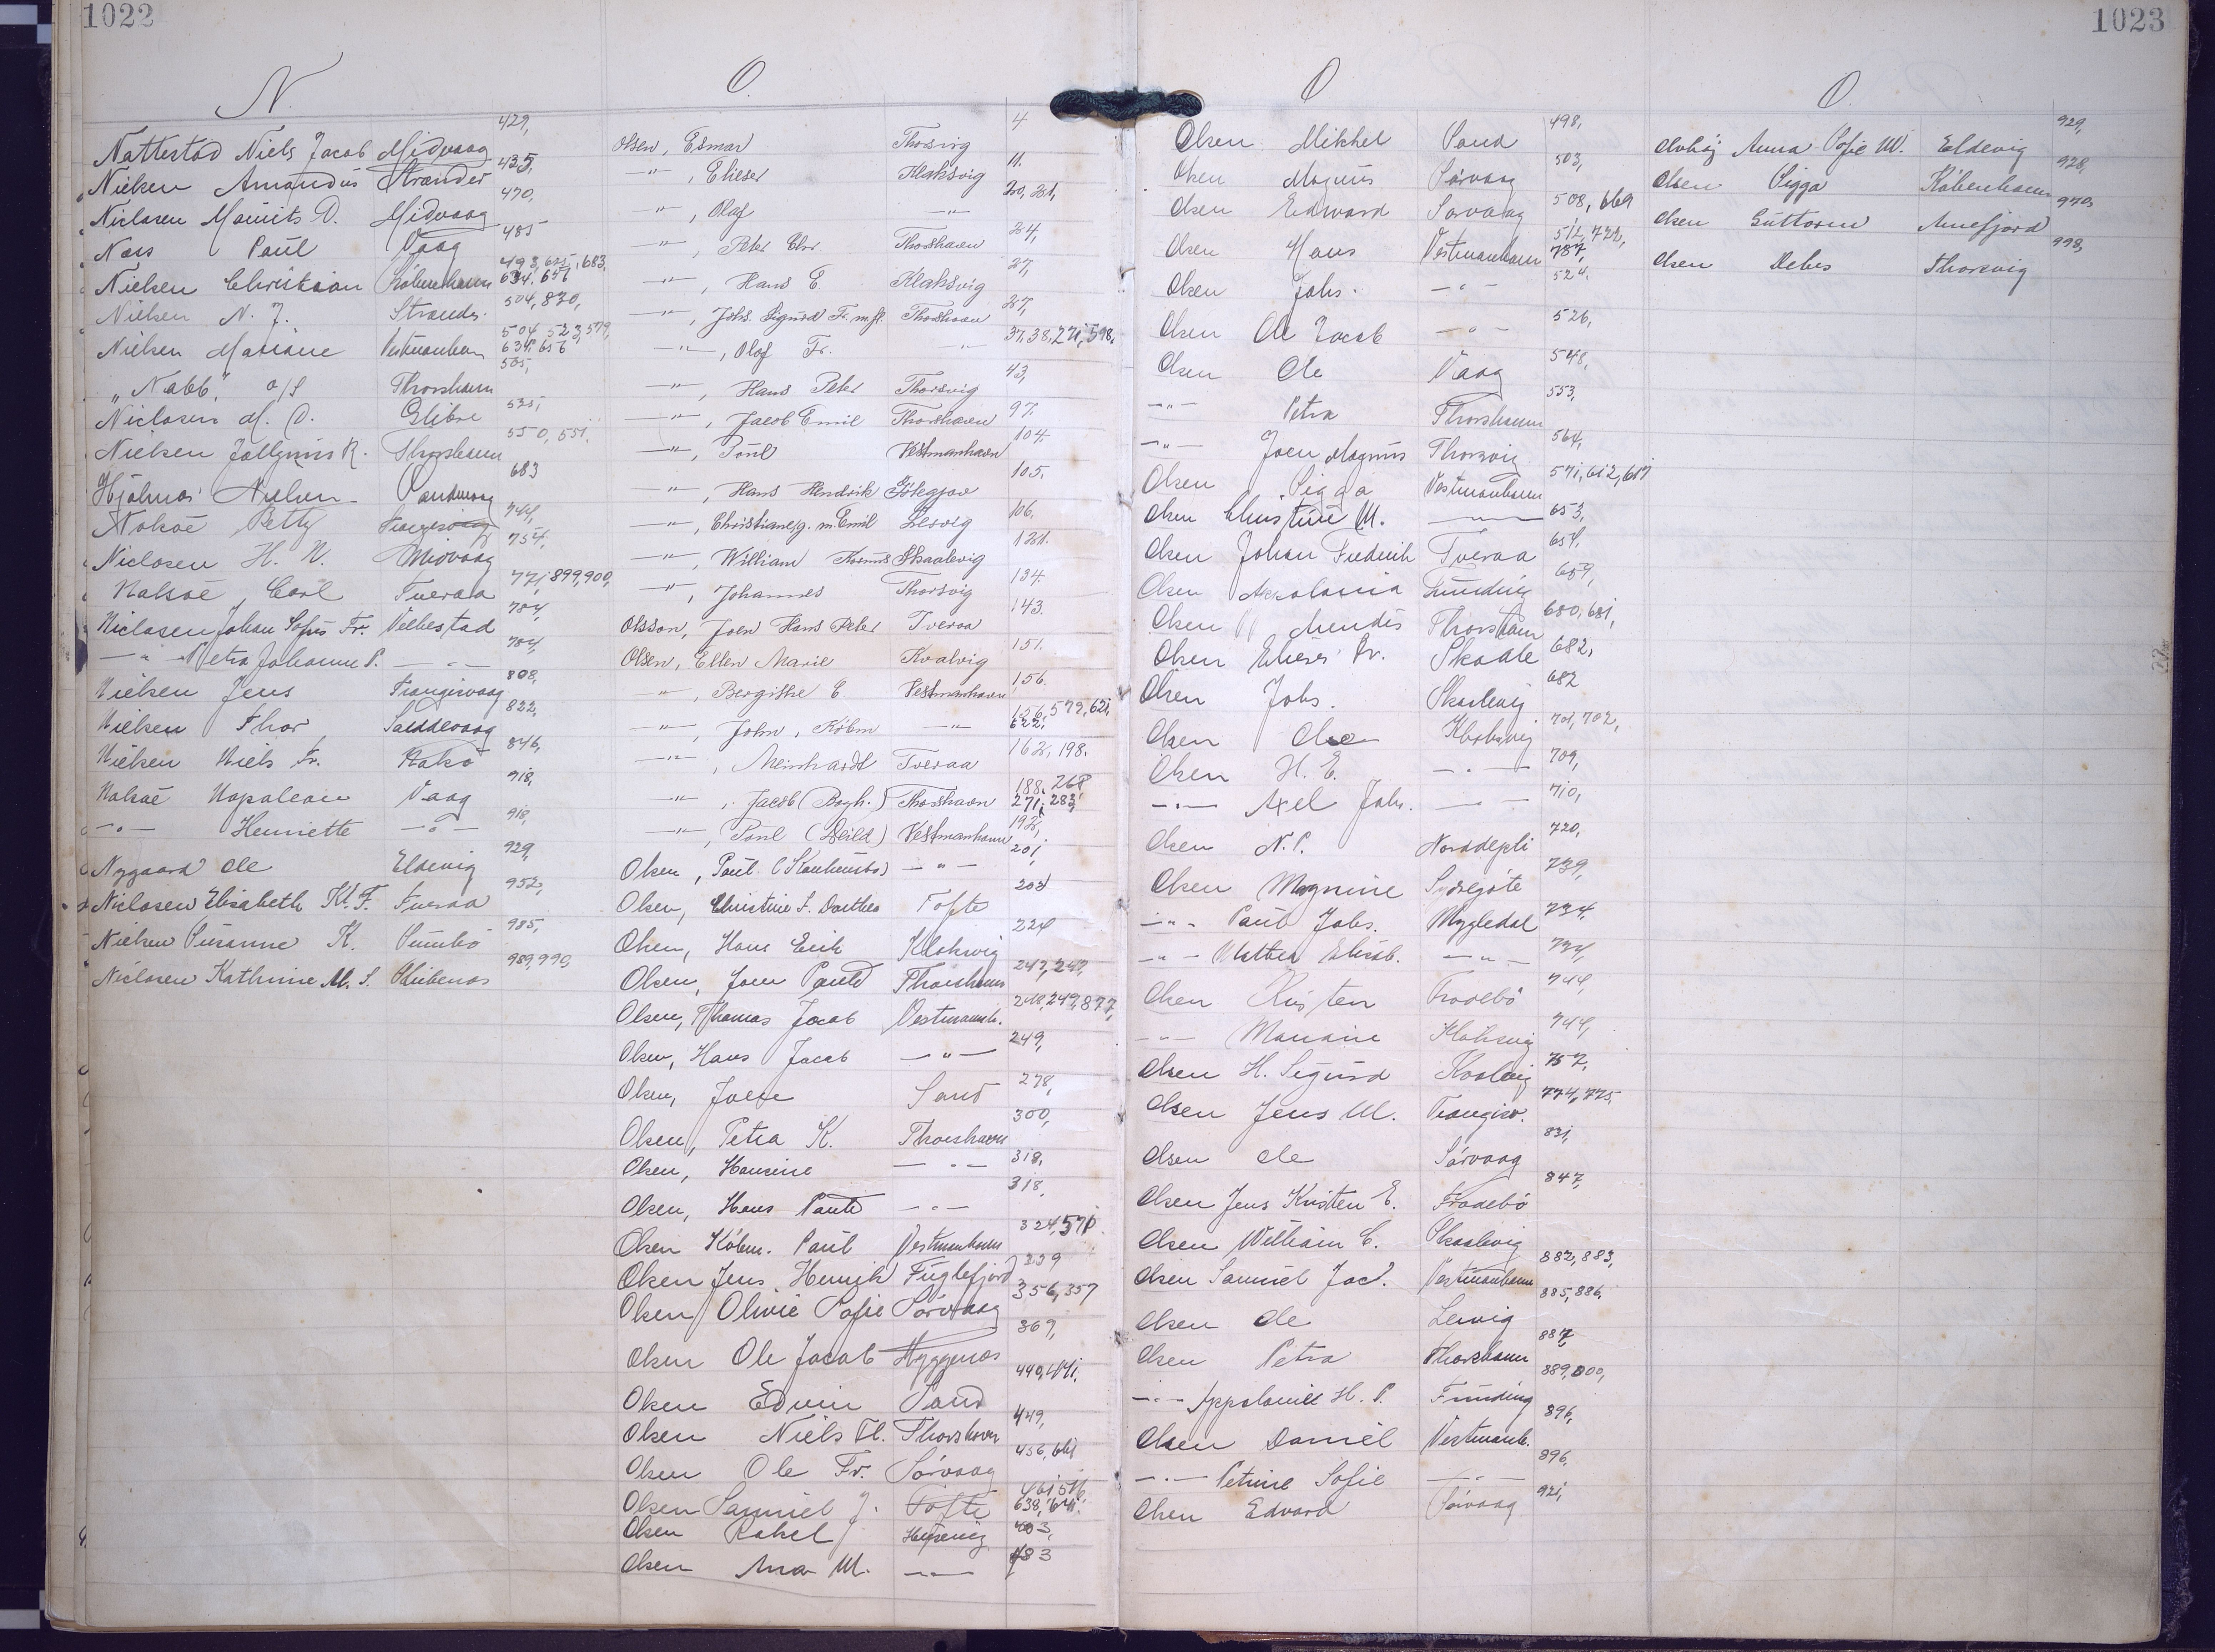 1022
N.
Nattestad Niels Jacob Midvaag 429,
Nielsen Amandus Strander 435,
Niclasen Maurits D. Midvaag 470,
Næs Paul Vaag 485
Nielsen Christian København 493, 625, 683, 634, 651
Nielsen N. J. Strander. 504, 870,
Nielsen Mariane Vestmanhavn 504, 523, 579, 634, 656
"Nabb", a/s Thorshavn 505,
Niclasen M. D. Glibre 525,
Nielsen Jallgrim R. Thorshavn 550, 551,
Hjalmar Nielsen Sandvaag 683
Nolsøe Betty 744,
Niclasen H. N. Midvaag 754,
Nolsøe, Carl Tveraa 771, 899, 900,
Niclasen Johan Sofus Fr. Velbestad 784,
—"— Petra Johanne P. —"— 784,
Nielsen Jens Trangisvaag 808,
Nielsen Thor, Salddervaag 822,
Nielsen Niels Fr. Nolsø 846,
Nolsøe Napoleon Vaag 918,
—"— Henriette —"— 918,
Nygaard Ole Eldevig 929,
Niclasen Elisabeth Kl. F. Tveraa 952,
Nielsen Susanne K. Sumbø 985,
Niclasen Kathrine M. S. Glibenæs 989, 990,
O.
Olsen, Esmar Thorsvig 4
—"—, Elieser Klaksvig 11.
—"—, Olaf —"— 20, 21,
—"—, Peter Chr. Thorshavn 24,
—"—, Hans E Klaksvig 27,
—"—, Johs. Sigurd Fr. m.fl. Thorshavn 27,
—"—, Olaf Fr. —"— 37, 38, 271, 598,
—"—, Hans Peter Thorsvig 43,
—"—, Jacob Emil Thorshavn 97.
—"—, Poul Vestmanhavn 104.
—"—, Hans Hendrik Gøtegjov 105.
—"—, Christiane, g. m. Emil Lervig 106.
—"—, William Skaalevig 121.
—"—, Johannes Thorsvig 134.
Olsson, Joen Hans Peter Tveraa 143.
Olsen, Ellen Marie Kvalvig 151.
—"—, Bergithe E. Vestmanhavn 156.
—"—, John, Købm —"— 156, 579, 621, 622,
—"—, Meinhardt Tveraa 162, 198.
—"—, Jacob (Bogh.) Thorshavn 188, 268, 271, 283,
—"—, Poul (Deild) Vestmanhavn 192,
Olsen, Paul —"— 201,
Olsen, Christine S. Dorthea Tofte 202
Olsen, Hans Erik Klaksvig 224
Olsen, Joen Pauld Thorshavn 247, 242,
Olsen, Thomas Jacob Vestmanh. 248, 249, 877,
Olsen, Hans Jacob —"— 249,
Olsen, Joen Sand 278,
Olsen, Petra K. Thorshavn 300,
Olsen, Hansine —"— 318,
Olsen, Hans Pauld —"— 318,
Olsen Købm. Paul Vestmanhavn 324, 571
Olsen Jens Henrik Fuglefjord 339
Olsen Olivie Sofie Sørvaag 356, 357
Olsen Ole Jacob Hyggenæs 369,
Olsen Edvin Sand 440, 441,
Olsen Niels Fl. Thorshavn 449,
Olsen Ole Fr. Sørvaag 456, 661
Olsen Samuel J. Tofte 461, 516, 638, 641.
Olsen Rakel Husevig 483,
Olsen Ana M. —"— 483
1023
O
Olsen Mikkel Sand 498,
Olsen Magnus Sørvaag 503,
Olsen Edward Sørvaag 508, 669
Olsen Hans Vestmanhavn 512, 722, 787,
Olsen Johs. —"— 524.
Olsen Ole Jacob —"— 526,
Olsen Ole Vaag 548,
—"— Petra Thorshavn 553,
—"— Joen Magnus Thorsvig 564,
Olsen Sigga Vestmanhavn 571, 612, 617
Olsen Christine M. —"— 653,
Olsen Johan Frederik Tveraa 654,
Olsen Appolonia Funding 659,
Olsen Mendis Thorshavn 680, 681,
Olsen Elieser Fr. Skaale 682,
Olsen Johs. Skaalevig 682
Olsen Ole Klaksvig 701, 702,
Olsen H. E. —"— 709,
—"— Axel Johs. —"— 710,
Olsen N. P. Norddepli 720,
Olsen Magnine Sydregøte 729,
—"— Paul Johs. Mygledal 734,
—"— Mathea Elisab. —"— 734,
Olsen Kristen Frodebø 744,
—"— Mariane Klaksvig 744,
Olsen H. Sigurd Kvalvig 757,
Olsen Jens M. Trangisv. 774, 775,
Olsen Ole Sørvaag 831,
Olsen Jens Kristen E. Frodebø 847,
Olsen William C. Skaalevig
Olsen Samuel Jac. Vestmanhavn 882, 883,
Olsen Ole Lervig 885, 886,
Olsen Petra Thorshavn 887,
—"— Appolonie H. P. Funding 889,
Olsen Daniel Vestmanh. 896,
—"— Petrine Sofie —"— 896,
Olsen Edvard Sørvaag 921,
O.
Anna Sofie M. Eldevig 929,
Olsen Sigga København 928,
Olsen Guttorm Arnefjord 970,
Olsen Debes Thorsvig 998,